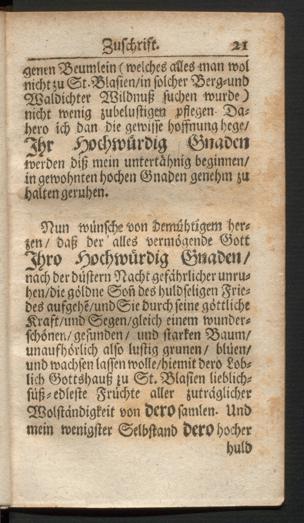 Zuschrift. 21
genen Beumlein (welches alles man wol
nicht zu St. Blasien/in solcher Berg-und
Waldichter Wildnuß suchen wurde)
nicht wenig zubelustigen pflegen. Da-
hero ich dan die gewisse hoffnung hege/
Ihr Hochwürdig Gnaden
werden diß mein untertähnig beginnen/
in gewohnten hochen Gnaden genehm zu
halten geruhen.
Nun wünsche von demühtigem her-
zen/ daß der alles vermögende Gott
Ihro Hochwürdig Gnaden/
nach der düstern Nacht gefährlicher unru-
hen/die göldne Soñ des huldseligen Frie-
des aufgehe/und Sie durch seine göttliche
Kraft/und Segen/gleich einem wunder-
schönen/ gesunden/ und starken Baum/
unaufhörlich also lustig grunen/ blüen/
und wachsen lassen wolle/hiemit dero Lob-
lich Gottshauß zu St. Blasien lieblich-
süß-edleste Früchte aller zuträglicher
Wolständigkeit von dero samlen. Und
mein wenigster Selbstand dero hocher
huld